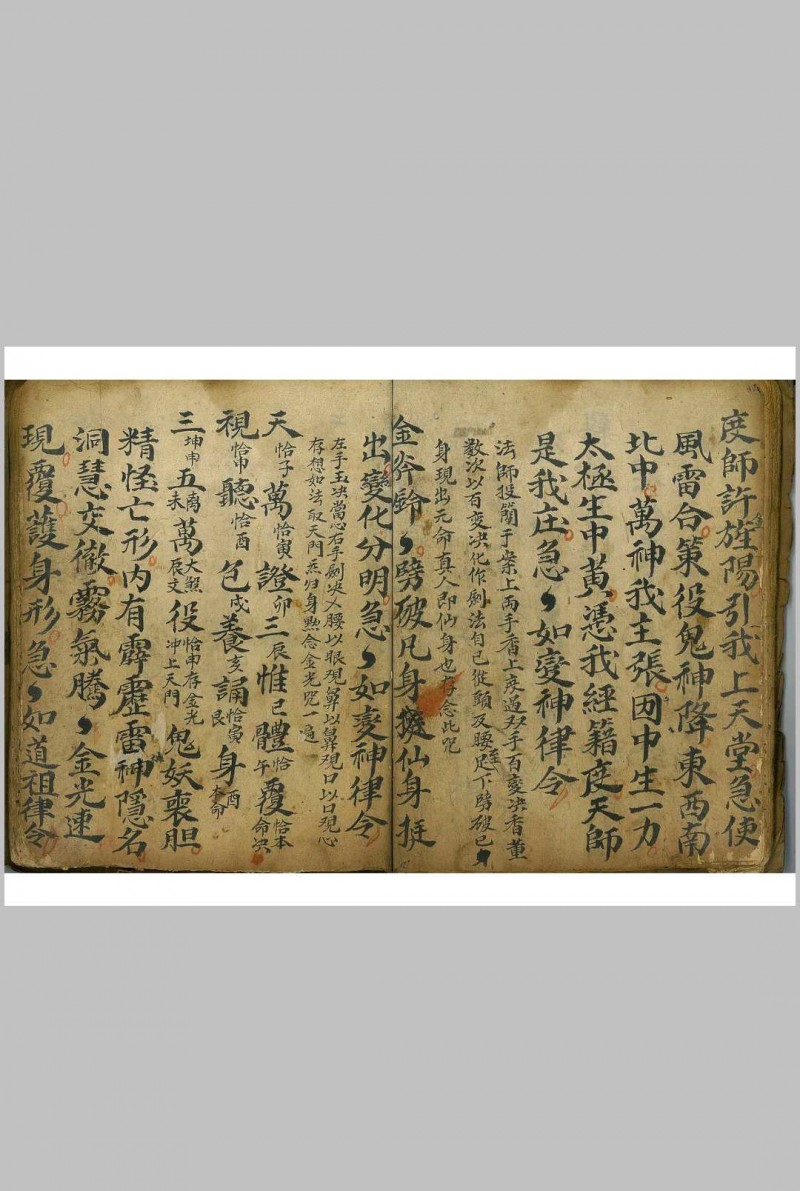 度師許旌陽引我上天堂急使
風雷合策役鬼神降東西南
北中萬神我主張因中生一力
太極生中黃憑我經籍度天師
是我庄急〻如變神律令
法師投簡于案上両手香上度過双手百變决香薰
数次以百变决化作劍法自己從頭及腰至足下劈破已
身現出元命真人即仙身也存念此咒
金斧鈴〻劈破凡身 仙身挺
出變化分明急〻如變神律令
左手玉决當心右手劍决乂腰以眼現鼻以鼻現口以口現心
存想如法取天門炁归身黙念金光咒一遍
天恰子萬恰寅證卯三辰惟巳體恰午覆恰本命决
視恰申聽恰酉包戌養亥誦恰寅艮身酉本命
三坤申五离未萬大煞辰文役恰由存金光冲上天門鬼妖喪胆
精怪亡形内有霹靂雷神隱名
洞慧交徹霧氣騰〻金光速
現覆護身形急〻如道祖律令